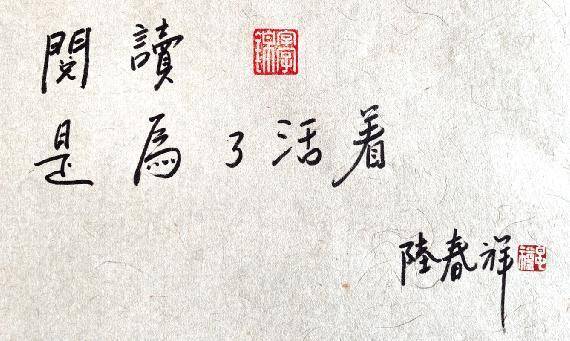 閱讀
是為了活着
陸春祥